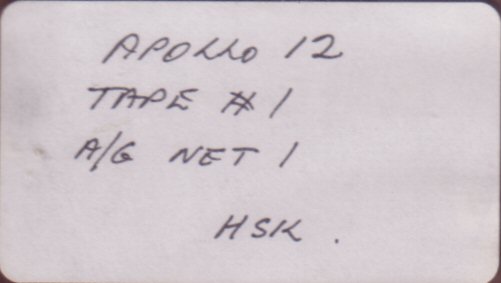 APOLLO 12
TAPE # 1
A/G NET 1
HSK.